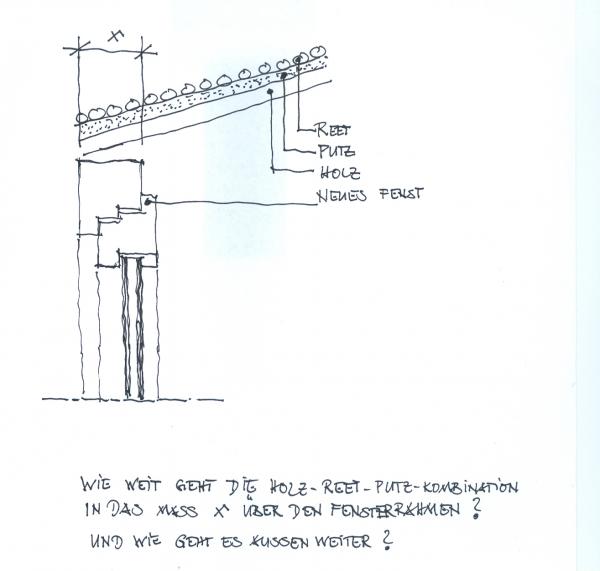 X
REET
PUTZ
HOLZ
NEUES FENST
WIE WEIT GEHT DIE HOLZ-REET-PUTZ-KOMBINATION
IN DAS MASS X ÜBER DEN FENSTERRAHMEN?
UND WIE GEHT ES AUSSEN WEITER?